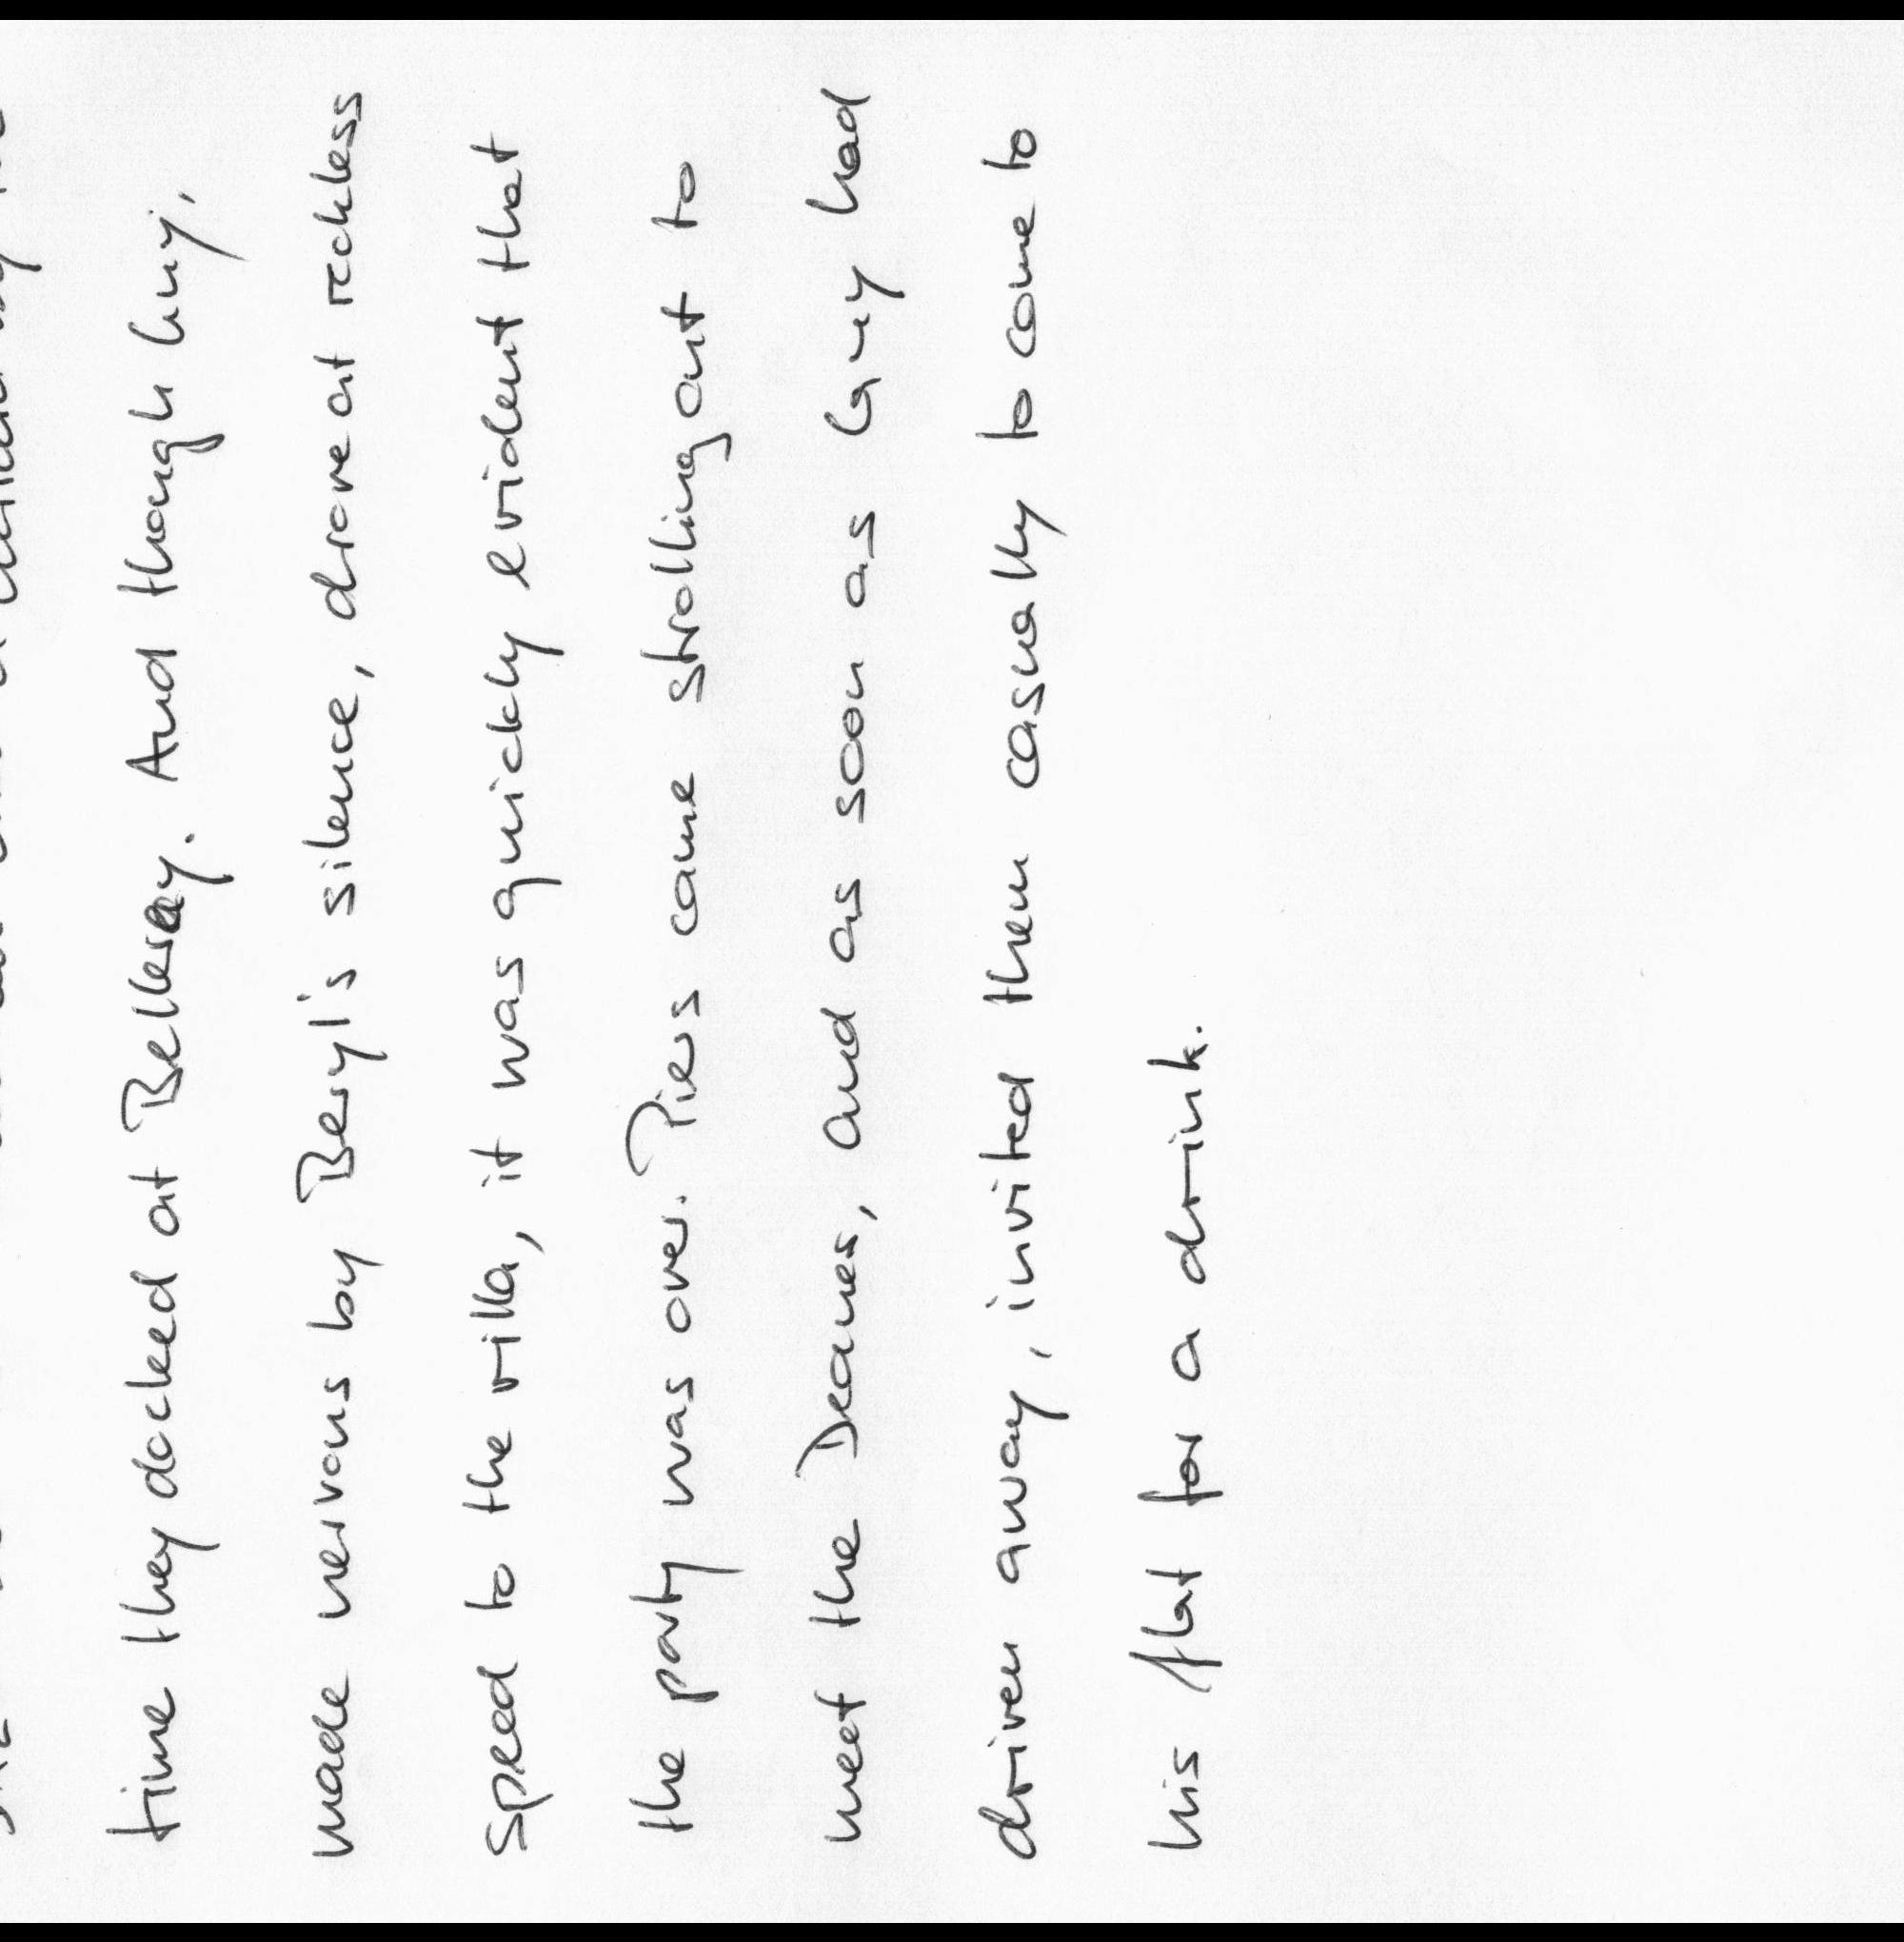 time they docked at Bellaray. And though Guy,
made nervous by Beryl's silence, drove at reckless
speed to the villa, it was quickly evident that
the party was over. Piers came strolling out to
meet the Deanes, and as soon as Guy had
driven away, invited them casually to come to
his flat for a drink.